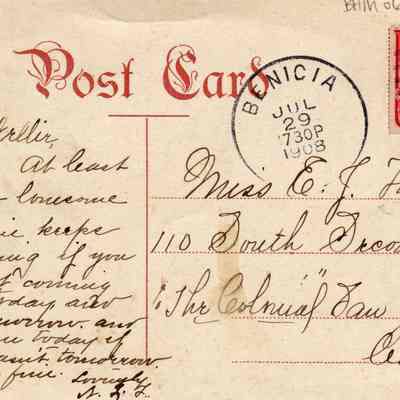 BHM 06
Post Card
BENICIA
JUL
29
730P
1908
At least
lonesome
keeps
ing if you
coming
today and
morrow. and
today if
tomorrow.
fine. Lovingly
Miss E. J.
110 South
"The Colonial"